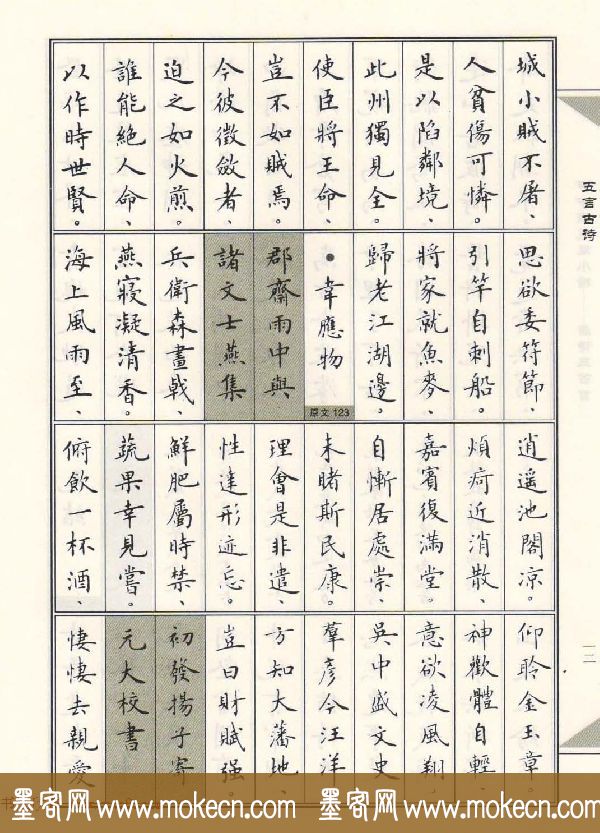 五言古诗
城小賊不屠、
人貧傷可憐。
是以陷鄰境、
此州獨見全。
使臣將王命、
豈不如賊焉。
今彼徵斂者、
迫之如火煎。
誰能絕人命、
以作時世賢。
思欲委符節、
引竿自刺船。
將家就魚麥、
歸老江湖邊。
●韋應物
原文 123
郡齋雨中與
諸文士燕集
兵衛森畫戟、
燕寢凝清香。
海上風雨至、
逍遥池閣涼。
煩疴近消散、
嘉賓復滿堂。
自慚居處崇、
未睹斯民康。
理會是非遣、
性達形迹忘。
鮮肥屬時禁、
蔬果幸見嘗。
俯飲一杯酒、
仰聆金玉章。
神歡體自輕、
意欲凌風翔。
吳中盛文史
羣彥今汪洋。
方知大藩地、
豈曰財賦强。
初發揚子寄
元大校書
悽悽去親愛
一二
墨客网 www.mokecn.com 墨客网 www.mokecn.com